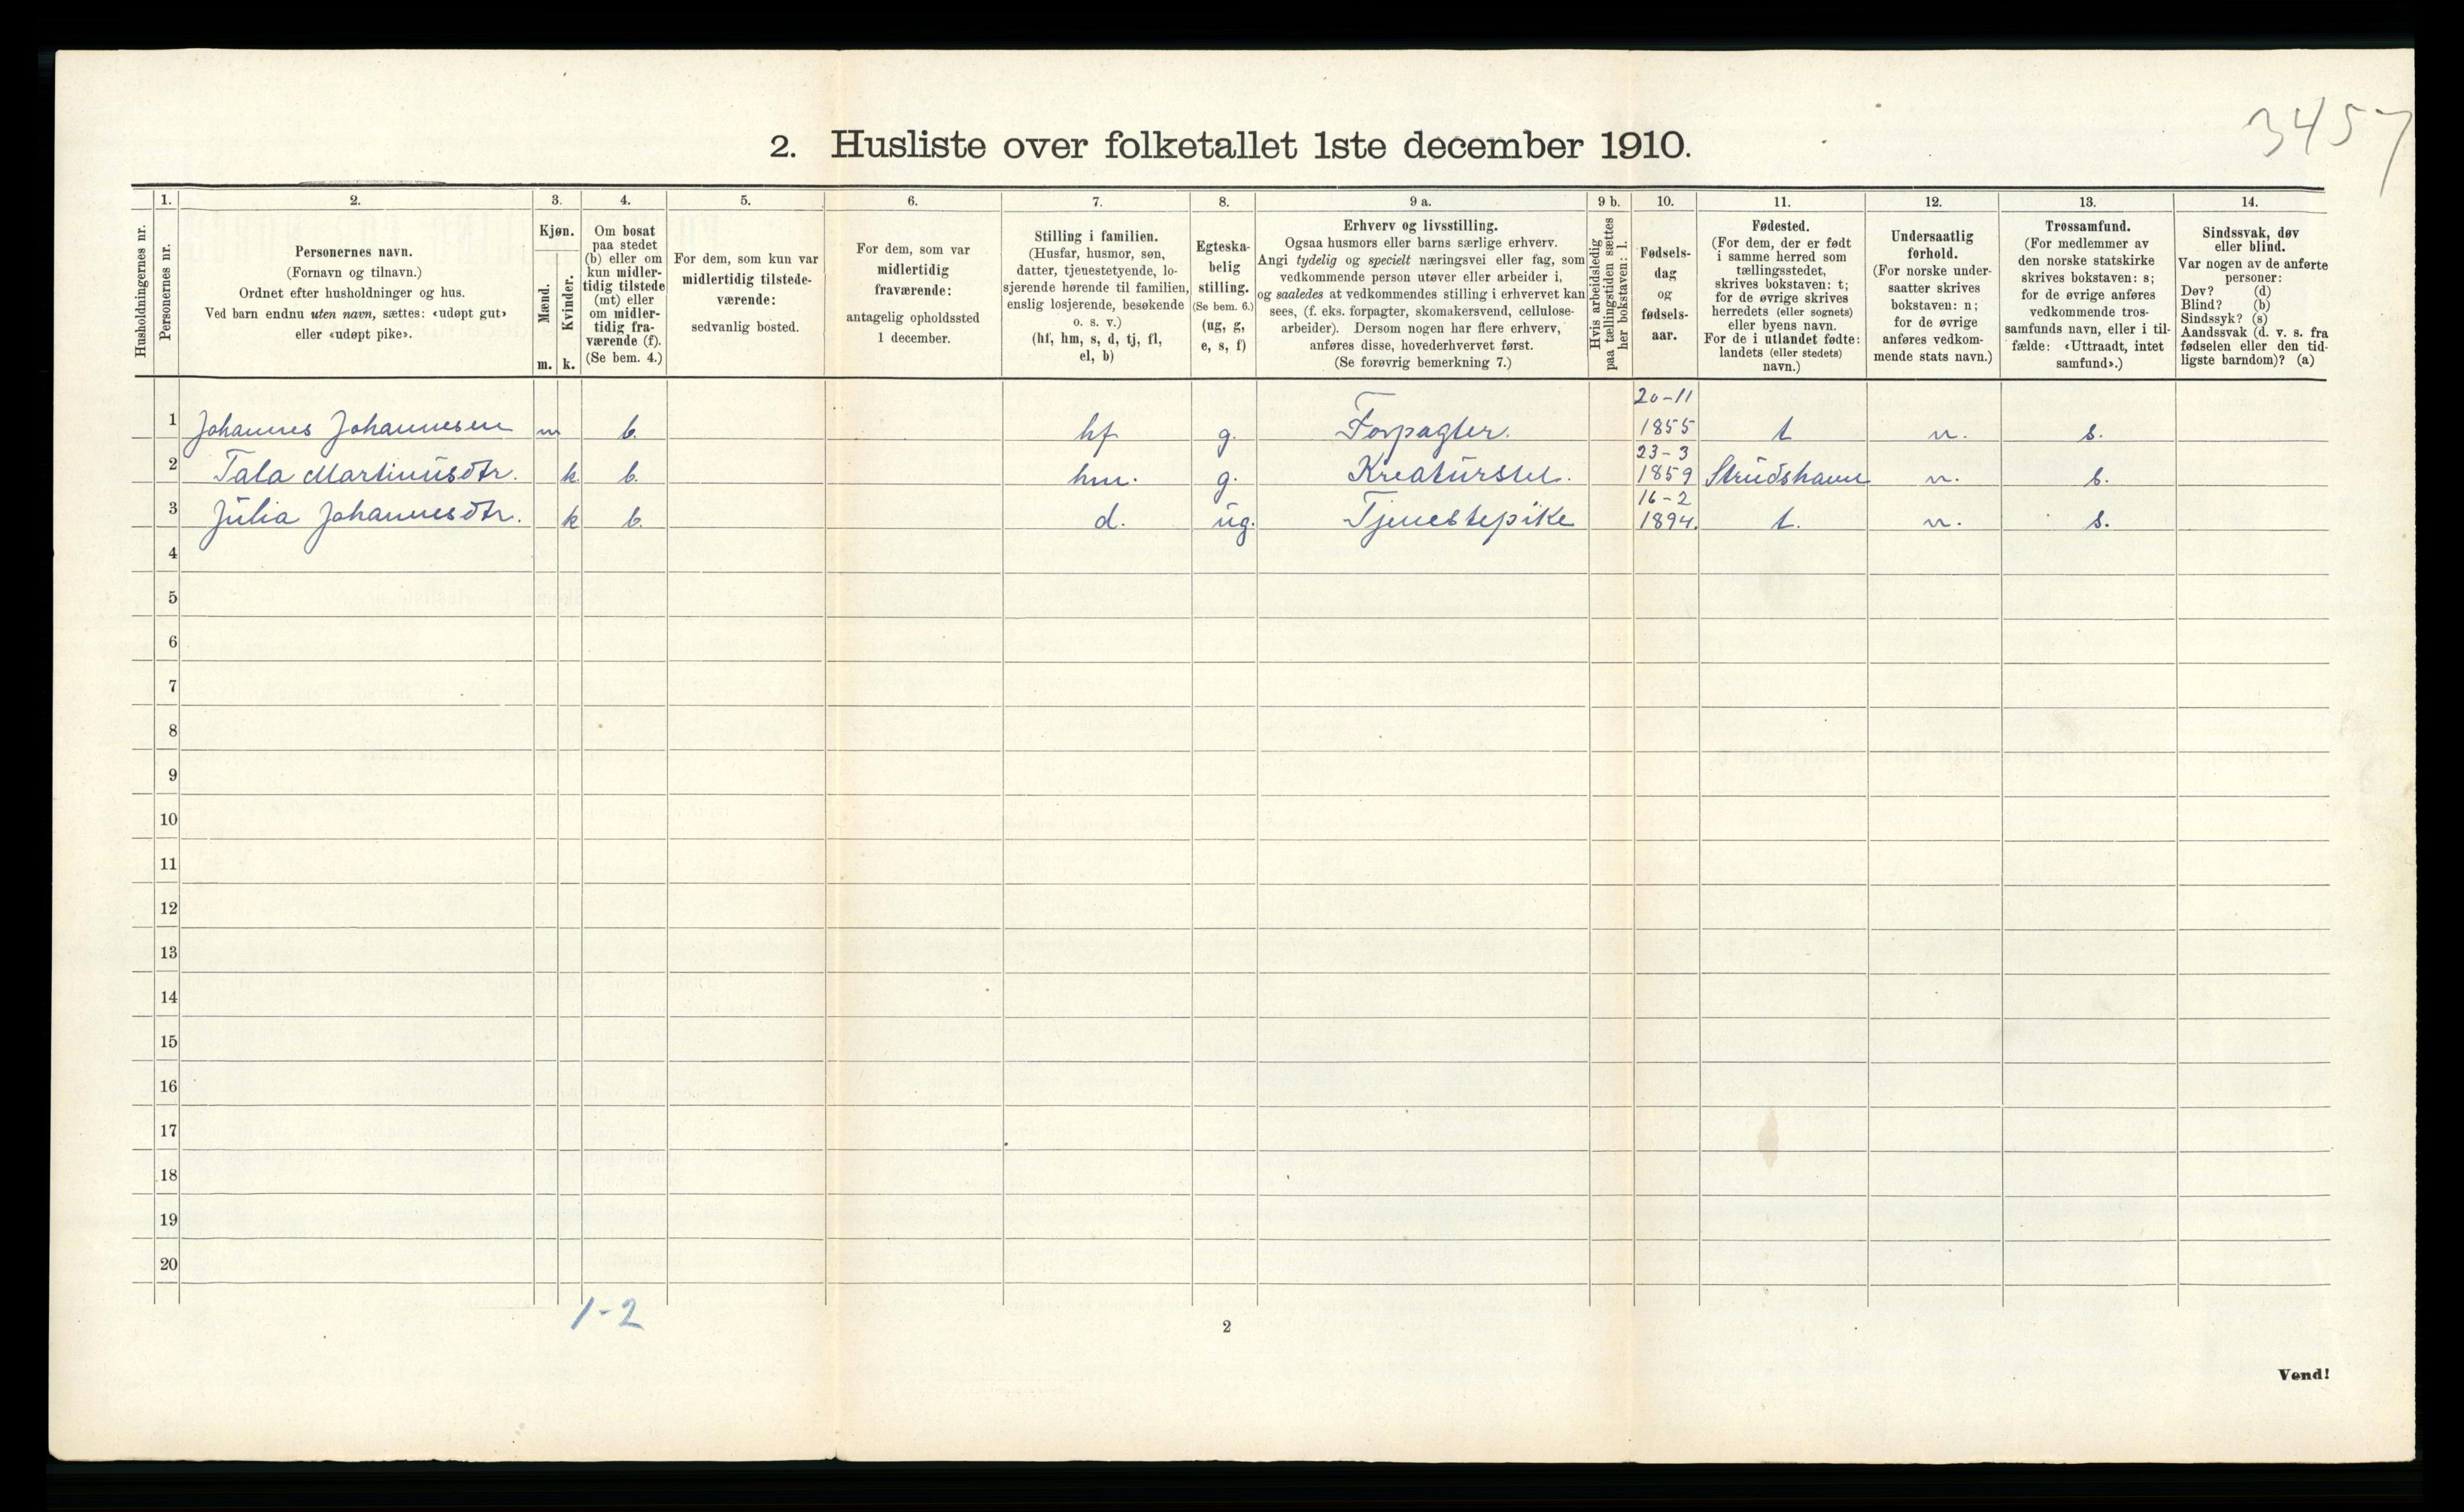 3457
2. Husliste over folketallet 1ste december 1910.
Husholdningernes nr.
1.
Personernes nr.
2.
Personernes navn.
(Fornavn og tilnavn.)
Ordnet efter husholdninger og hus.
Ved barn endnu uten navn, sættes: «udøpt gut»
eller «udøpt pike».
3.
Kjøn.
Mænd.
Kvinder.
m. k.
4.
Om bosat
paa stedet
(b) eller om
kun midler-
tidig tilstede
(mt) eller
om midler-
tidig fra-
værende (f).
(Se bem. 4.)
5.
For dem, som kun var
midlertidig tilstede-
værende:
sedvanlig bosted.
6.
For dem, som var
midlertidig
fraværende:
antagelig opholdssted
1 december.
7.
Stilling i familien.
(Husfar, husmor, søn,
datter, tjenestetyende, lo-
sjerende hørende til familien,
enslig losjerende, besøkende
o. s. v.)
(hf, hm, s, d, tj, fl,
el, b)
8.
Egteska-
belig
stilling.
(Se bem. 6.)
(ug, g,
e, s, f)
9 a.
Erhverv og livsstilling.
Ogsaa husmors eller barns særlige erhverv.
Angi tydelig og specielt næringsvei eller fag, som
vedkommende person utøver eller arbeider i,
og saaledes at vedkommendes stilling i erhvervet kan
sees, (f. eks. forpagter, skomakersvend, cellulose-
arbeider). Dersom nogen har flere erhverv,
anføres disse, hovederhvervet først.
(Se forøvrig bemerkning 7.)
9 b.
Hvis arbeidsledig
paa tællingstiden sættes
her bokstaven: l.
10.
Fødsels-
dag
og
fødsels-
aar.
11.
Fødested.
(For dem, der er født
i samme herred som
tællingsstedet,
skrives bokstaven: t;
for de øvrige skrives
herredets (eller sognets)
eller byens navn.
For de i utlandet fødte:
landets (eller stedets)
navn.)
12.
Undersaatlig
forhold.
(For norske under-
saatter skrives
bokstaven: n;
for de øvrige
anføres vedkom-
mende stats navn.)
13.
Trossamfund.
(For medlemmer av
den norske statskirke
skrives bokstaven: s;
for de øvrige anføres
vedkommende tros-
samfunds navn, eller i til-
fælde: «Uttraadt, intet
samfund».)
14.
Sindssvak, døv
eller blind.
Var nogen av de anførte
personer:
Døv? (d)
Blind? (b)
Sindssyk? (s)
Aandssvak (d. v. s. fra
fødselen eller den tid-
ligste barndom)? (a)
20-11
1 Johannes Johannesen m b. hf g. Forpagter. 1855 t n. s.
23-3
2 Tala Martinusdtr. k. b. hm. g. Kreaturstel. 1859 Strudshavn n. s.
16-2
3 Julia Johannesdtr. k b. d. ug. Tjenestepike 1894. t. n. s.
4
5
6
7
8
9
10
11
12
13
14
15
16
17
18
19
20
1-2
2
Vend!